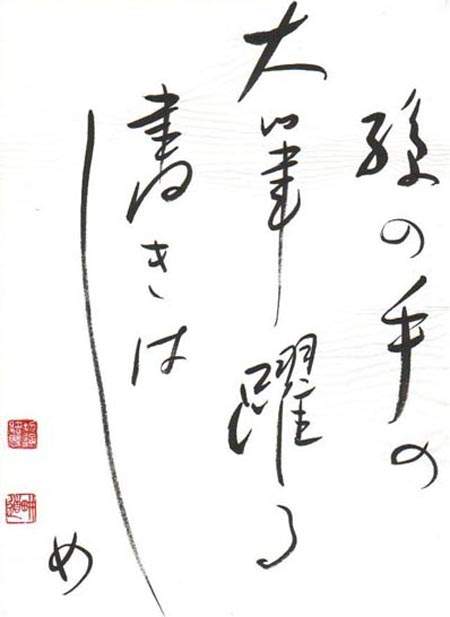 孫の手の
大筆躍る
書きは
じ
め